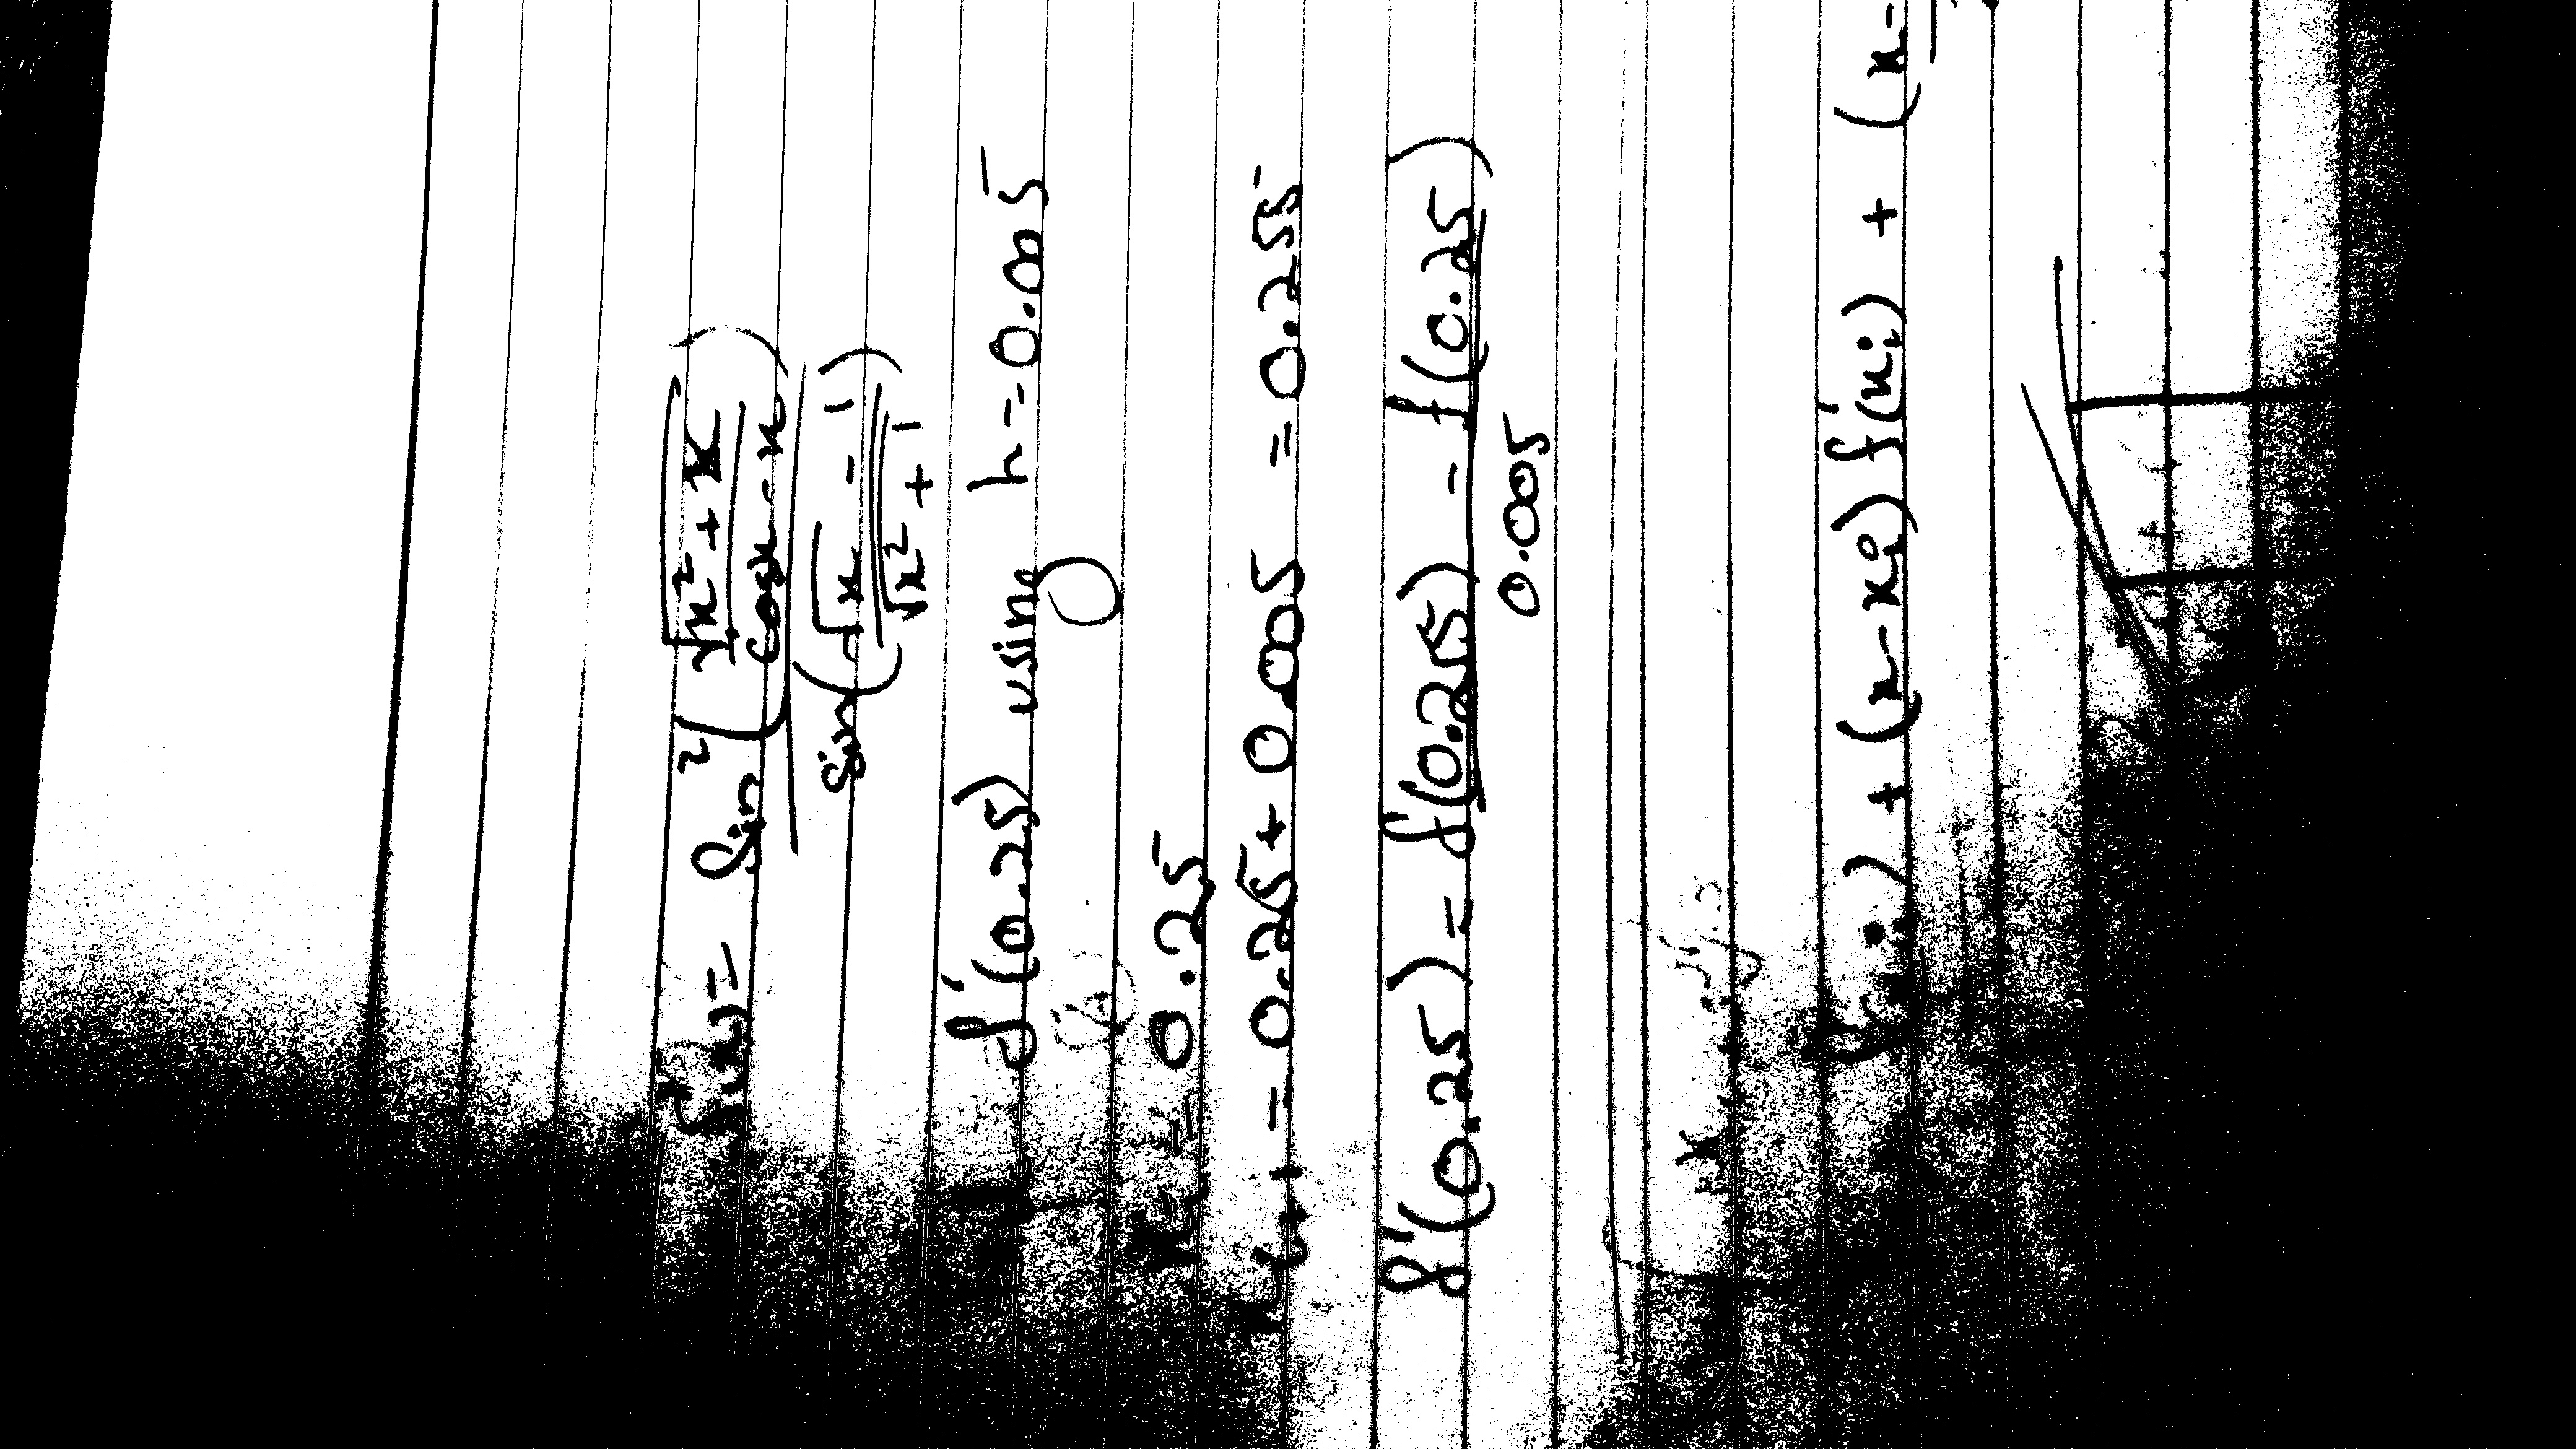 f(x) = Sin²(√((√x² + x)/(cosx - x)))
Sin((√x - 1)/(√x² + 1))
f'(0.25) using h = 0.005
= 0.25
= 0.25 + 0.005 = 0.255
f'(0.25) = f(0.255) - f(0.25)
0.005
) + (x - xi) f'(xi) + (x-